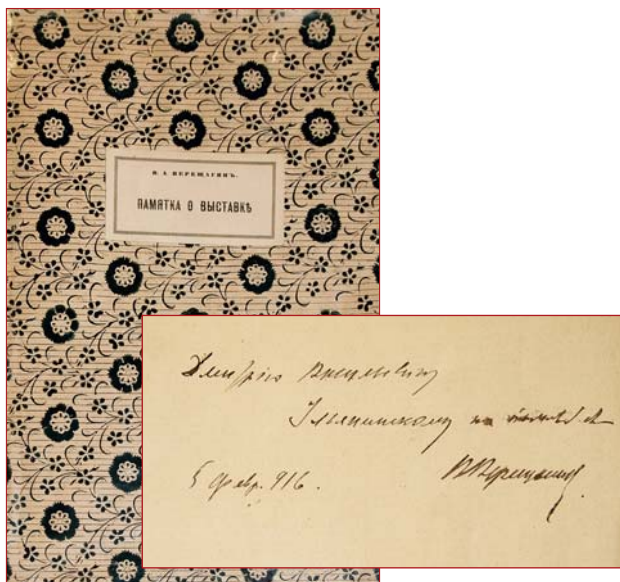 В. А. ВЕРЕЩАГИНЪ.
ПАМЯТКА О ВЫСТАВКѢ
Дмитрію Васильевичу
Ульянинскому на
5 февр. 916.
В Верещагин